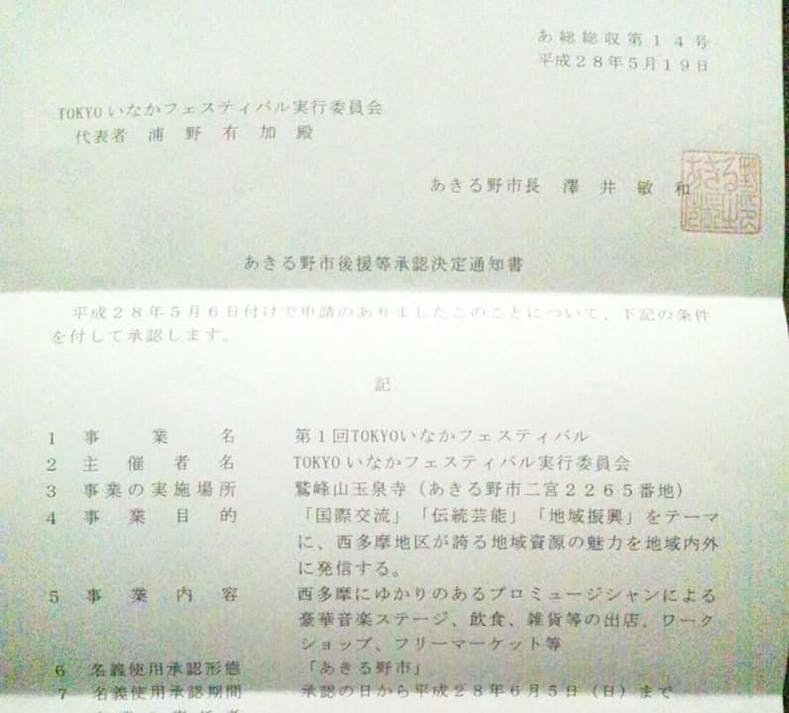 あ総総収第１４号
平成２８年５月１９日
TOKYOいなかフェスティバル実行委員会
代表者　浦　野　有　加　殿
あきる野市長　澤　井　敏　和
あきる野市後援等承認決定通知書
平成２８年５月６日付けで申請のありましたこのことについて、下記の条件
を付して承認します。
記
１　事　業　名　第１回TOKYOいなかフェスティバル
２　主　催　者　名　TOKYOいなかフェスティバル実行委員会
３　事業の実施場所　鷲峰山玉泉寺（あきる野市二宮２２６５番地）
４　事　業　目　的　「国際交流」「伝統芸能」「地域振興」をテーマ
に、西多摩地区が誇る地域資源の魅力を地域内外
に発信する。
５　事　業　内　容　西多摩にゆかりのあるプロミュージシャンによる
豪華音楽ステージ、飲食、雑貨等の出店、ワーク
ショップ、フリーマーケット等
６　名義使用承認形態　「あきる野市」
７　名義使用承認期間　承認の日から平成２８年６月５日（日）まで